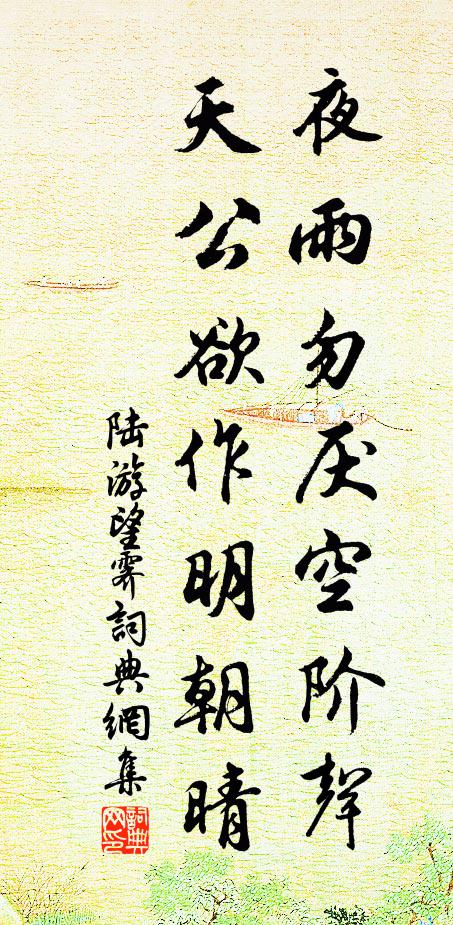 夜雨勿厌空阶聲
天公欲作明朝晴
陆游望霁詞典網集
詞典网印